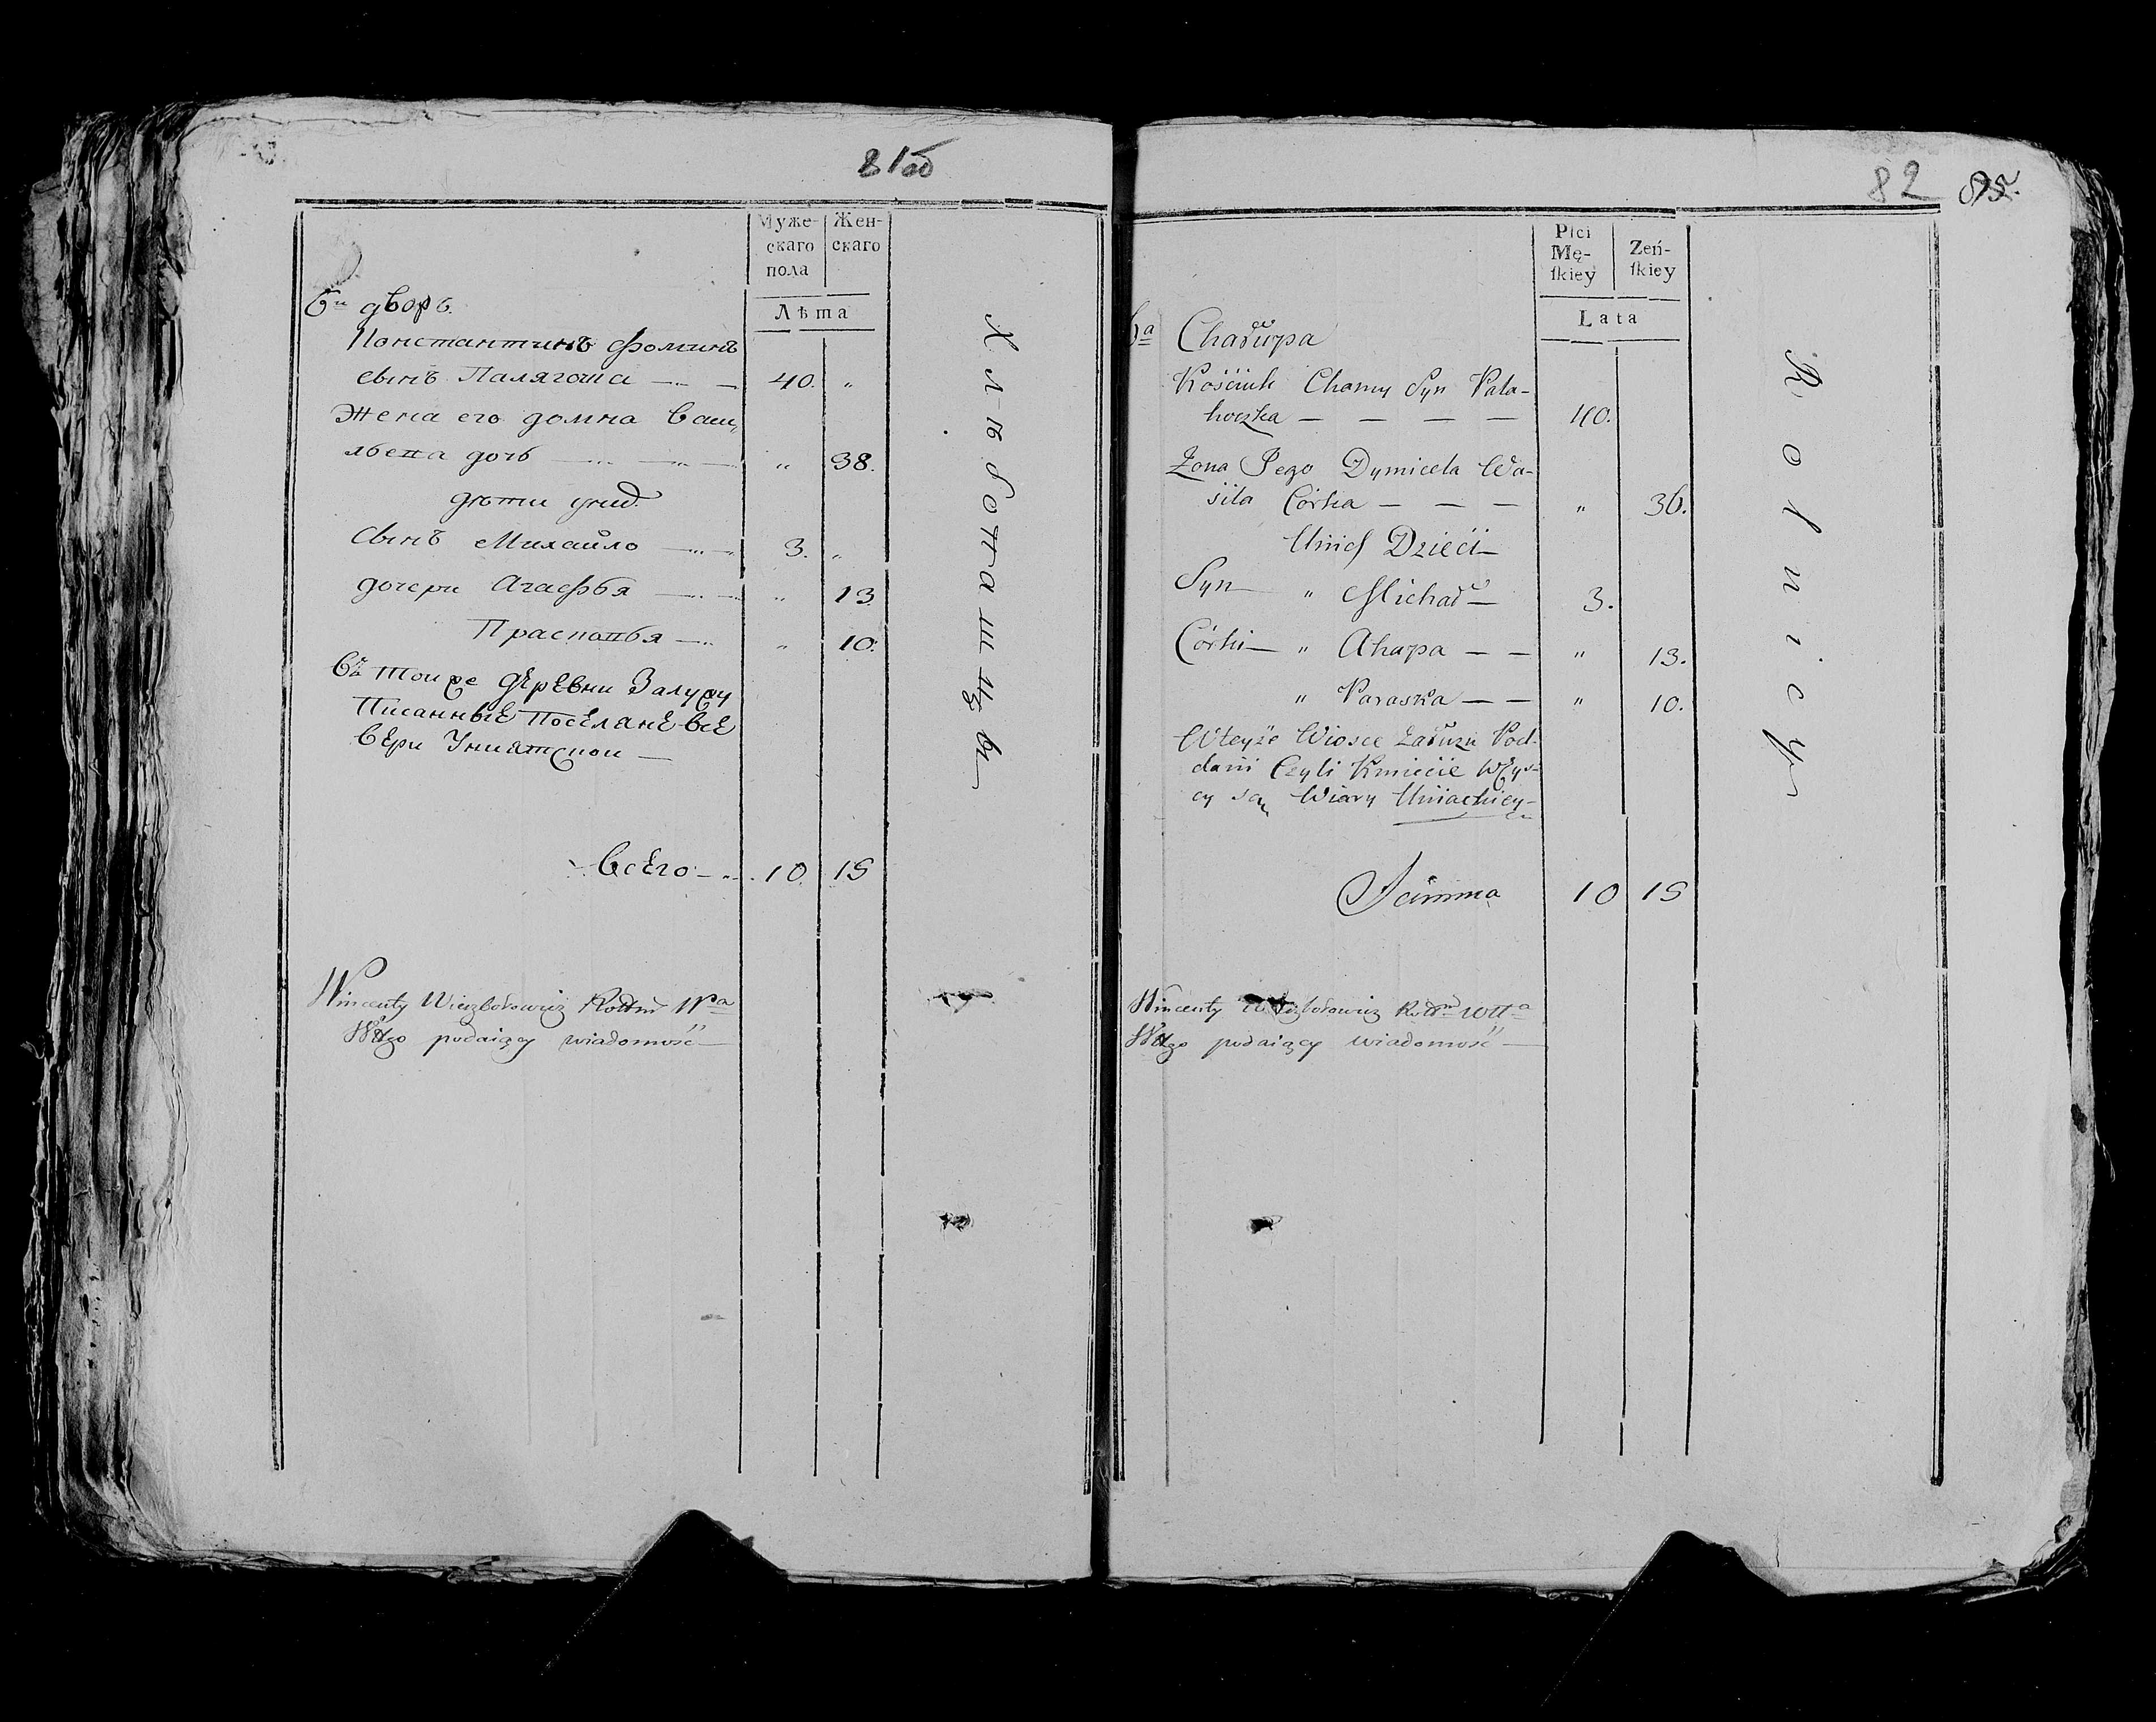 81об
Муже-
скаго
пола
Жен-
скаго
Лѣта
6й дворъ.
Константинъ Фоминъ
сынъ Палягошка 40. "
Жена его домна Васи,
льева дочь " 38.
дѣти унид.
Сынъ Михайло 3. "
дочери Агафья " 13
Прасковья " 10.
Въ той же деревни Залужу
Писанные Поселане все
вери Униятской
Всего 10. 15
Wincenty Wierzbołowicz Rottm Wa
Wtgo podaiący wiadomość
Хлѣбопашцы
82 85.
Płci
Mę-
ſkiey
Żeń-
ſkiey
Lata
6a Chałupa
Kościuk Chomy Syn Pala-
hoszka 40.
Zona Jego Dymicela Wa-
sila Córka " 36.
Unich Dzieci
Syn " Michał 3.
Córki " Ahapa " 13.
" Paraska " 10.
Wteyże Wiosce Załużu Pod-
dani Czyli Kmiecie wszys-
cy są Wiary Uniackiey
Summa 10 15
Wincenty Wierzbołowicz Rottm Wtta
Wtgo podaiący wiadomość
Rolnicy